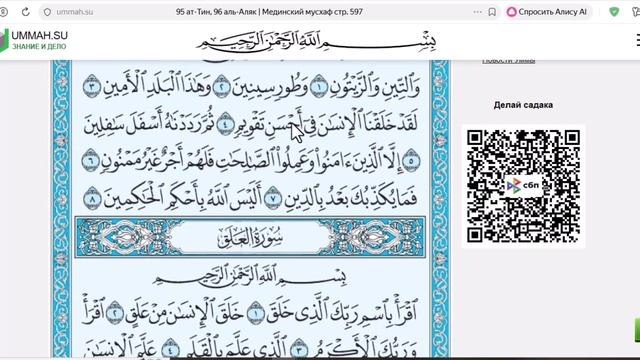 ummah.su
95 ат-Тин, 96 аль-Аляк | Мединский мусхаф стр. 597
Спросить Алису AI
UMMAH.SU
ЗНАНИЕ И ДЕЛО
بِسْمِ اللَّهِ الرَّحْمَٰنِ الرَّحِيمِ
Новости Уммы
Делай садака
сбп
وَالتِّينِ وَالزَّيْتُونِ ١ وَطُورِ سِينِينَ ٢ وَهَٰذَا الْبَلَدِ الْأَمِينِ ٣
لَقَدْ خَلَقْنَا الْإِنسَانَ فِي أَحْسَنِ تَقْوِيمٍ ٤ ثُمَّ رَدَدْنَاهُ أَسْفَلَ سَافِلِينَ
٥ إِلَّا الَّذِينَ ءَامَنُوا وَعَمِلُوا الصَّالِحَاتِ فَلَهُمْ أَجْرٌ غَيْرُ مَمْنُونٍ ٦
فَمَا يُكَذِّبُكَ بَعْدُ بِالدِّينِ ٧ أَلَيْسَ اللَّهُ بِأَحْكَمِ الْحَاكِمِينَ ٨
سُورَةُ الْعَلَقِ
بِسْمِ اللَّهِ الرَّحْمَٰنِ الرَّحِيمِ
اقْرَأْ بِاسْمِ رَبِّكَ الَّذِي خَلَقَ ١ خَلَقَ الْإِنسَانَ مِنْ عَلَقٍ ٢ اقْرَأْ
وَرَبُّكَ الْأَكْرَمُ ٣ الَّذِي عَلَّمَ بِالْقَلَمِ ٤ عَلَّمَ الْإِنسَانَ